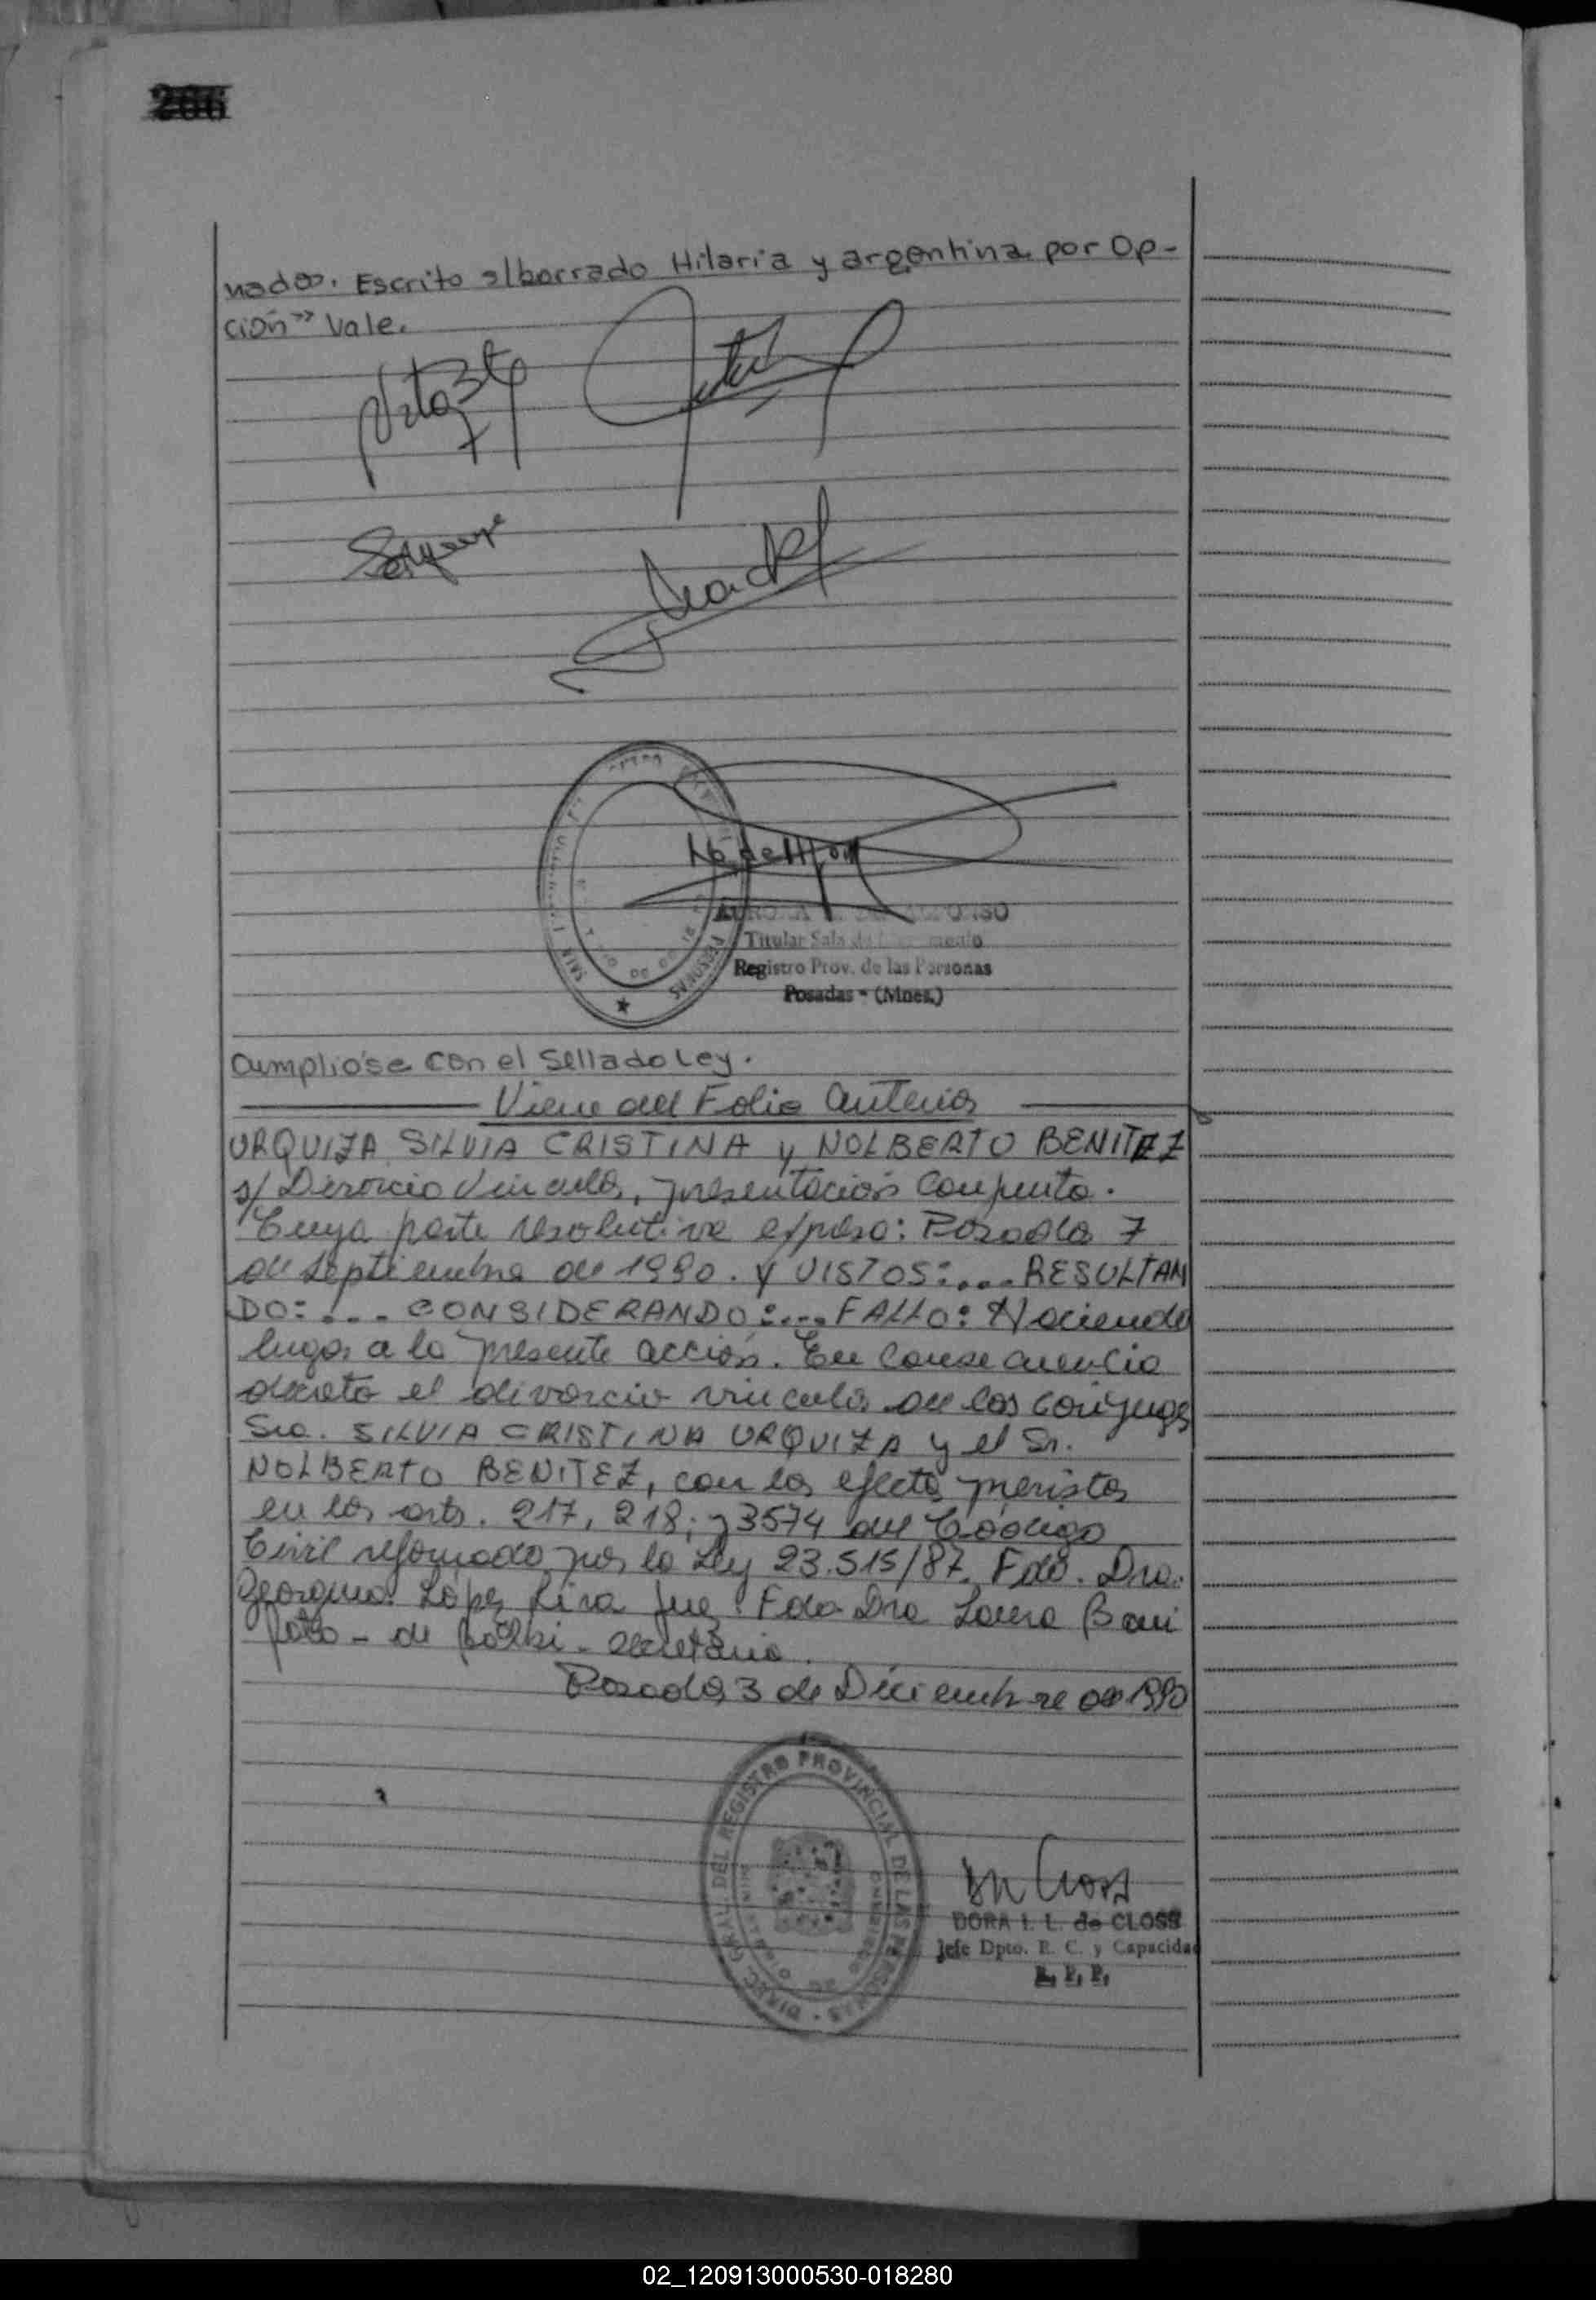 206
nados. Escrito s/borrado Hilaria y argentina por Op-
ción" Vale.
Titular Sala de
Registro Prov. de las Personas
Posadas - (Mnes.)
PERSONAS
Cumplióse con el Sellado Ley.
Viene del Folio Anterior
URQUIZA SILVIA CRISTINA y NOLBERTO BENITEZ
s/ Divorcio Vincular, presentación Conjunta.
Cuya parte resolutiva expresa: Posadas 7
de septiembre de 1990. Y VISTOS:... RESULTAN
DO:... CONSIDERANDO:... FALLO: Haciendo
lugar a la presente acción. En Consecuencia
decreto el divorcio vincular de los Cónyuges
Sra. SILVIA CRISTINA URQUIZA y el Sr.
NOLBERTO BENITEZ, con los efectos previstos
en los arts. 217, 218; y 3574 del Código
Civil reformado por la Ley 23.515/87. Fdo. Dra.
Georgina López Lira Juez. Fdo Dra
de secretaria.
Posadas 3 de Diciembre de 1990
DIREC. GRAL. DEL REGISTRO PROVINCIAL DE LAS PERSONAS
DORA I. L. de CLOSS
Jefe Dpto. E. C. y Capacidad
R. P. P.
02_120913000530-018280